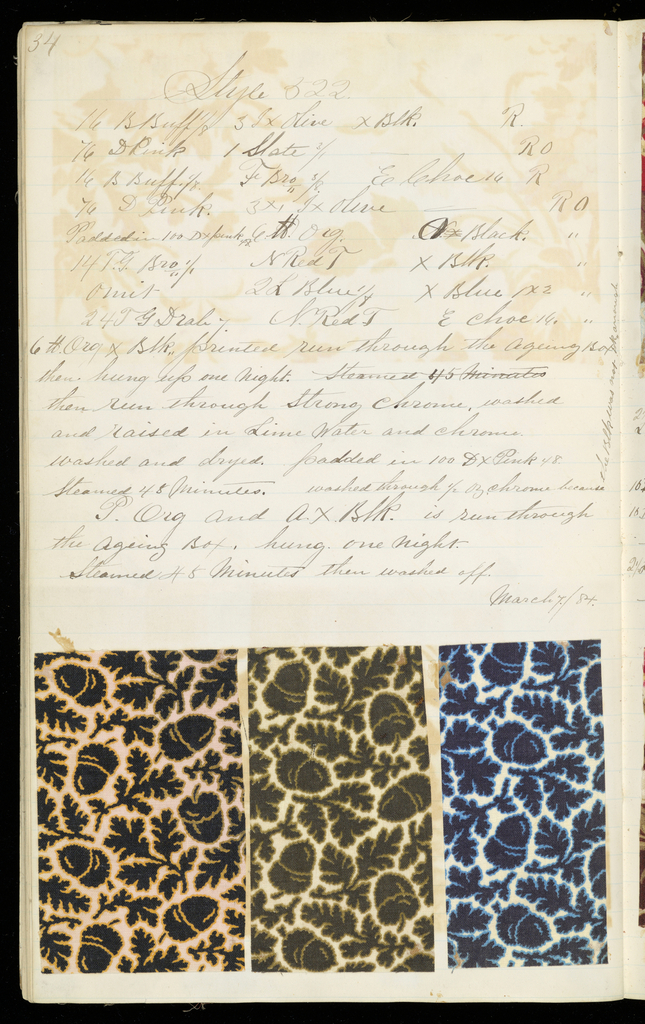 34
Style 522
16 B Buff 1/8 3 S x Olive x Blk. R.
76 D Pink 1 Slate RO
16 B Buff F Bro E Choc 16 R
76 D Pink. 3x1 J x Olive RO
Padded in 100 Dx Pink 6 tt. Org. Black. "
14 T. G. Bro N Red T X Blk. "
Omit 2 L Blue 1/4 X Blue 1x2 "
24 T G Drab N. Red T E Choc 16. "
6 tt. Org x Blk., Printed run through the Ageing Box
then hung up one Night. Steamed 45 Minutes
then run through Strong Chrome, washed
and raised in Lime Water and chrome.
washed and dryed. Padded in 100 Dx Pink 48.
Steamed 45 Minutes. washed through 1/2 oz chrome because
the Blk was not enough
P. Org and A. X. Blk. is run through
the Ageing Box. hung one Night.
Steamed 45 Minutes then washed off.
March 7/84.